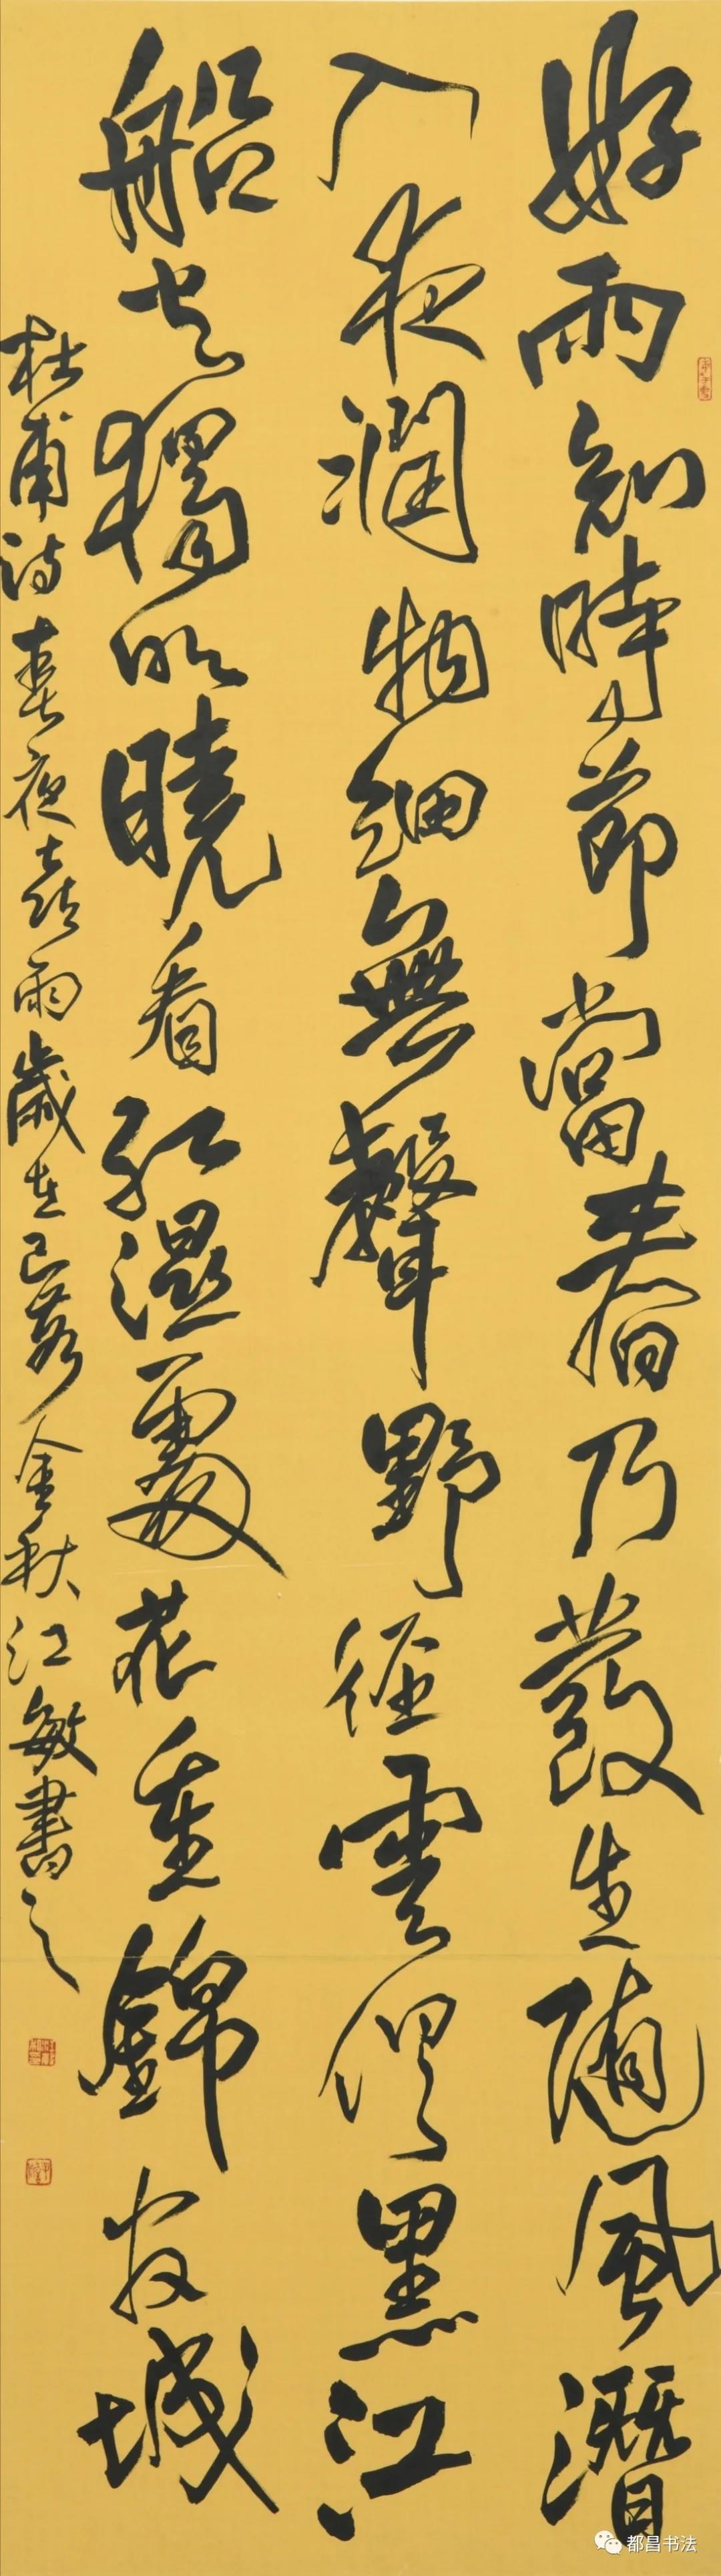 好雨知時節當春乃發生随風潛
入夜潤物細無聲野徑雲俱黑江
船火獨明曉看紅濕處花重錦官城
杜甫诗春夜喜雨歲在己亥金秋江敏書之
都昌书法